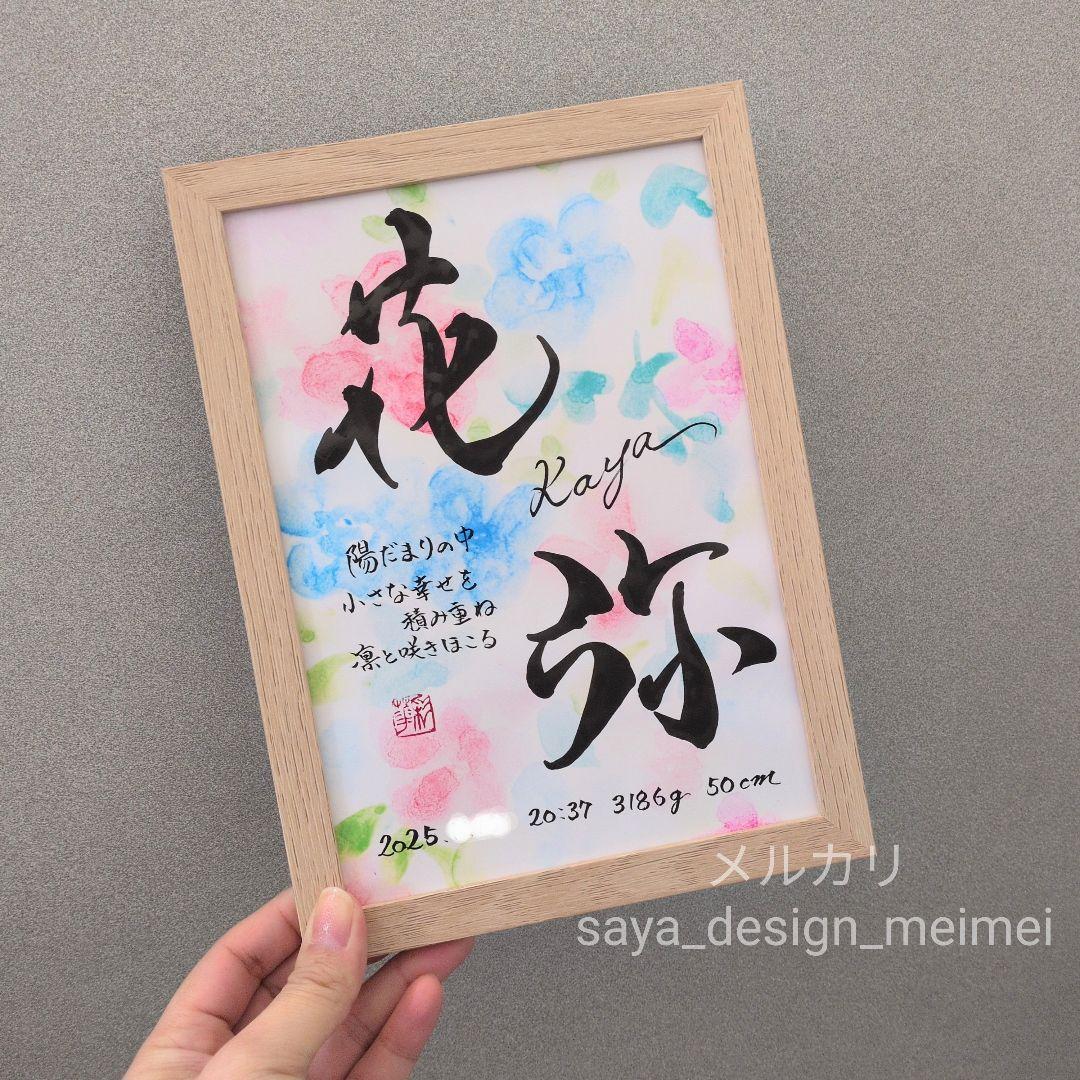 花
弥
Kaya
陽だまりの中
小さな幸せを
積み重ね
凛と咲きほこる
2025.
20:37 3186g 50cm
メルカリ
saya_design_meimei